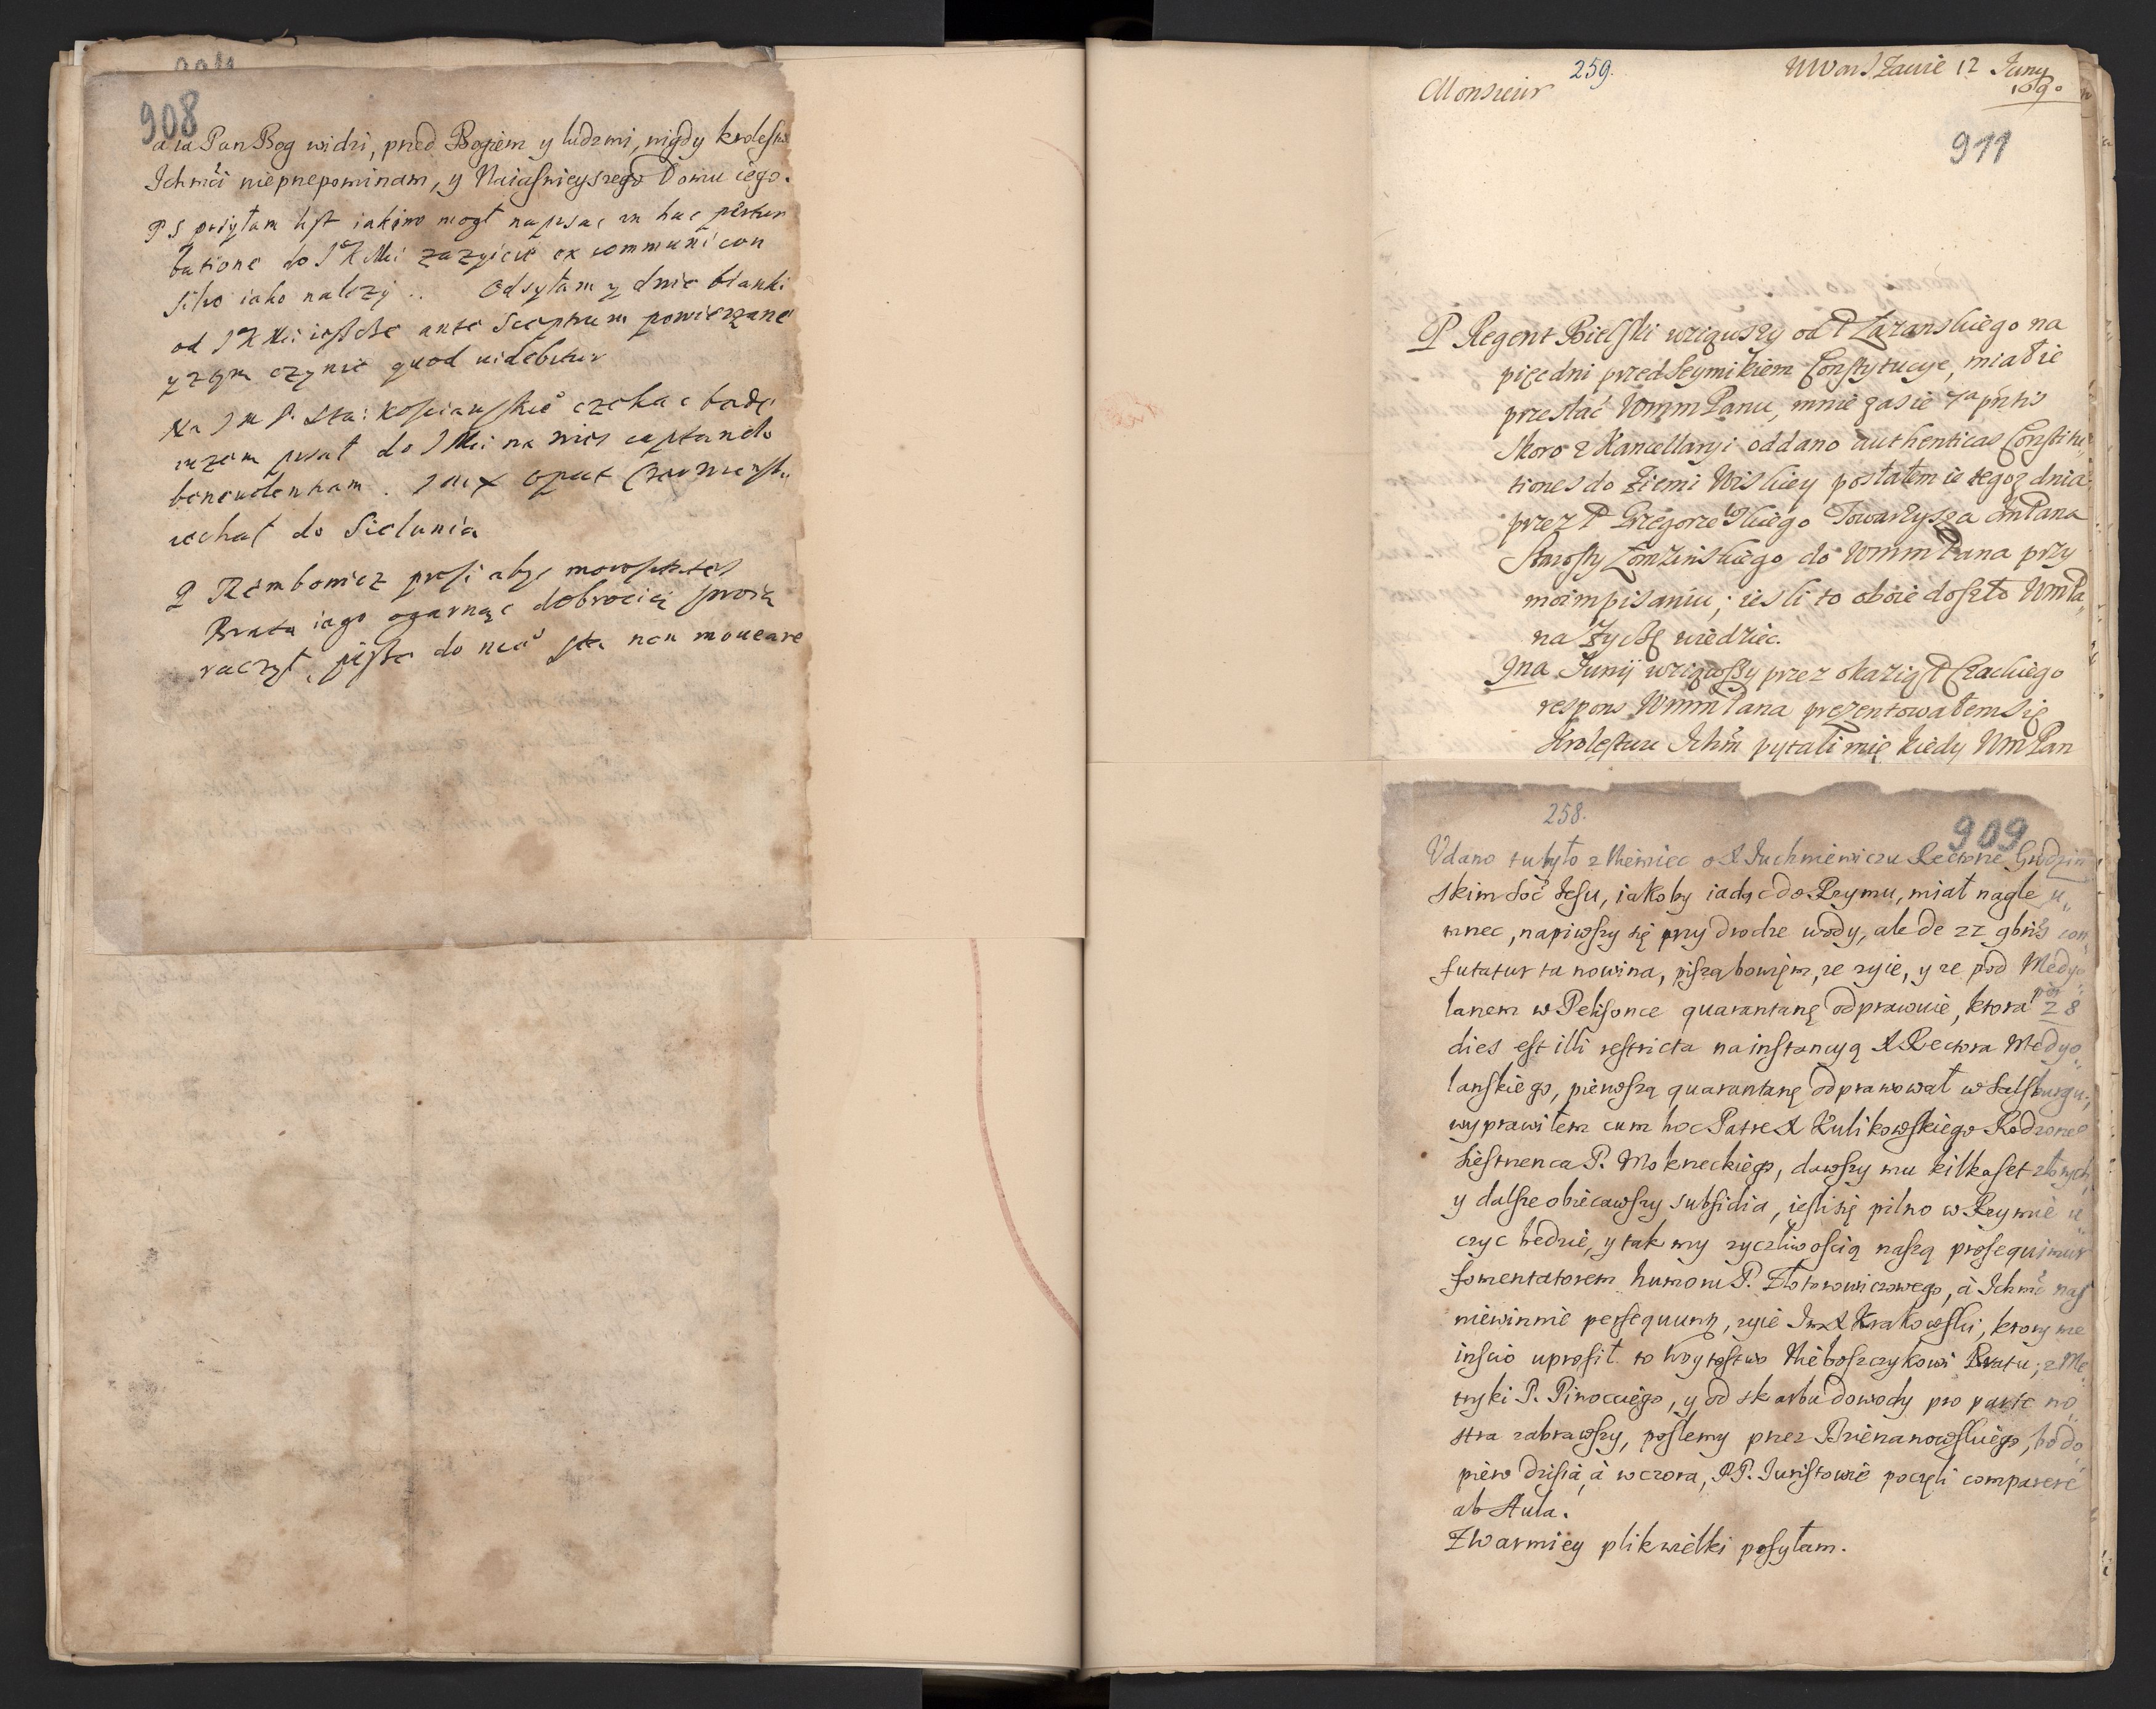 908
a ia Pan Bog widzi, pred Bogiem y ludzmi, nigdy krolestw
Ichmći nieprepominam, y Naiasnieyszego Domu iego.
PS posyłam list iakim mogł napisac in hac pertur
batione do JKMci zazyicie ex communi con
silio iako nalezy .. Odsyłam y dnie blanki
od JKMci ieszcze ante Sceptrum powierzane
y zoym czynic quod uidebitur
Na JMP. Sta: Koscianskie czekac będę
pisał do JMci na nies captando
beneuolentiam . JMX opat
iechał do Sielunia
P Rembowicz prosi abys
Brata iego ogarnąć dobrocią swoią
raczył, pisze do non mouere
259.
Monsieur
W Warszawie 12 Juny
1690
911
P Regent Bielski wziąwszy od P Łazanskiego na
pięc dni przed Seymikiem Constytucye, miał ie
przesłać WmmPanu, mnie zasie 7a pntis
skoro z Kancellaryi oddano authenticas Constitu„
tiones do Ziemi Wiskiey posłałem ie tegoz dnia
przez P Grzegorzewskiego Towarzysza ImPana
Starosty Łomzinskiego do Wmm Pana przy
moimpisaniu; iesli to oboie doszło WmPa„
na zyczę wiedziec.
9na Junij wziąwszy przez okazią P Czackiego
respons WmmPana prezentowałem się
Krolestwu Ichm pytali mię kiedy WmPan
258.
909
Vdano tu było z Niemiec o X Juchniewiczu Rectorze Grodzin
skim Soc Jesu, iakoby iadąc do Rzymu, miał nagle u„
mrec, napiwszy się przy drodze wody, ale de 22 gbris con„
futatur ta nowina, piszą bowięm, ze zyie, y ze pod Medyo„
lanem w Pelisonce quarantanę odprawuie, ktora pro 28
dies est illi restricta na instancyą X Rectora Medyo„
lanskiego, pierwszą quarantanę odprawował w Salsburgu;
wyprawiłem cum hoc Patre X Kulikowskiego Rodzone°
Siestrzenca P. Mokrzeckiego, dawszy mu kilkaset złotych,
y dalsze obiecawszy subsidia, iesli się pilno w Rzymie u„
czyc będzie, y tak my zyczliwoscią naszą prosequimur
fomentatorem humoru P. Złotorowiczowego, à Ichmć nas
niewinnie persequuntr, zyie Imx Krakowski, ktory me
inscio uprosił to Woytostwo Nieboszczykowi Bratu; z Me„
tryki P. Pinocciego, y od skarbu dowody pro parte no„
stra zabrawszy, poslemy przez Brzezanowskiego, bo do„
piero dzisia, à wczora, PP. Juristowie poczęli comparere
ab Aula.
Z Warmiey plik wielki posyłam.